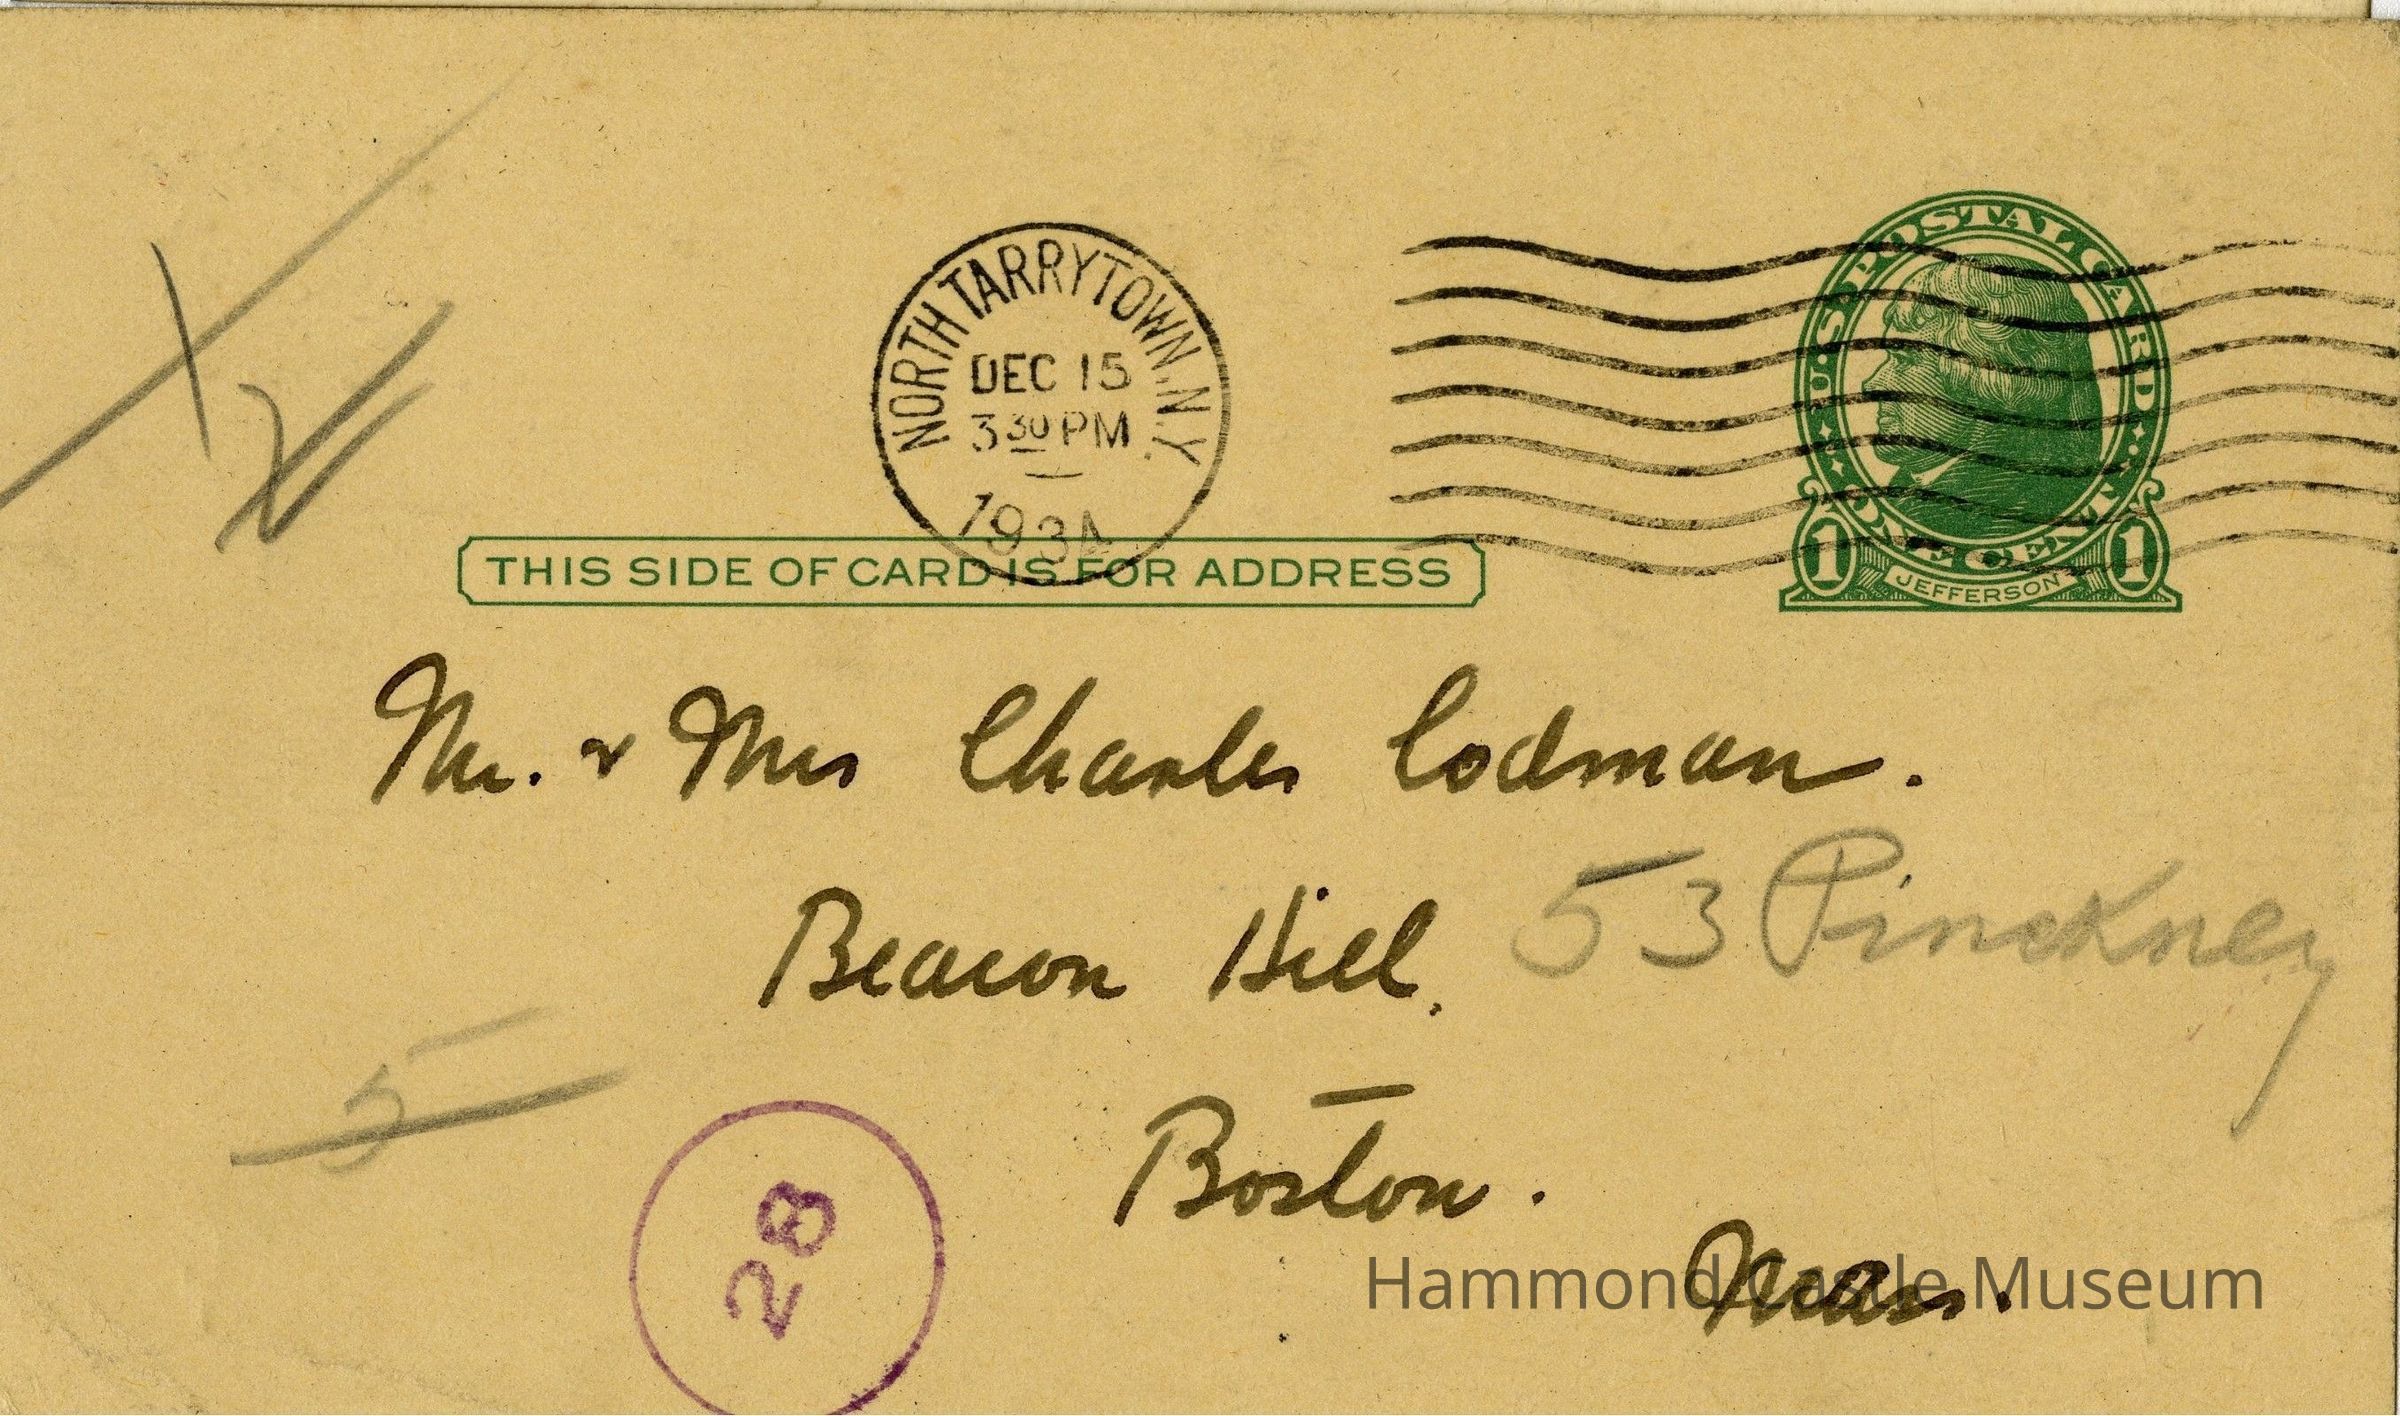 NORTH TARRYTOWN, N.Y.
DEC 15
3 30 PM
1934
U.S. POSTAL CARD
ONE CENT
1 JEFFERSON 1
THIS SIDE OF CARD IS FOR ADDRESS
Mr. & Mrs Charles Codman.
Beacon Hill, 53 Pinckney
5
Boston.
28
Mass.
Hammond Castle Museum